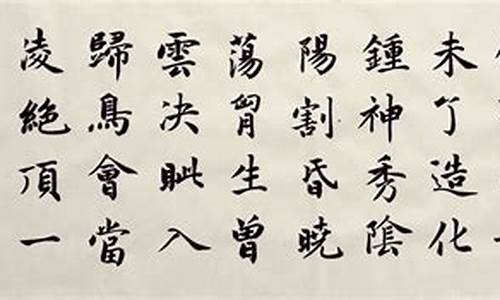 未了造化
鍾神秀陰
陽割昏曉
蕩胷生曾
雲决眦入
歸鳥會當
凌絶頂一